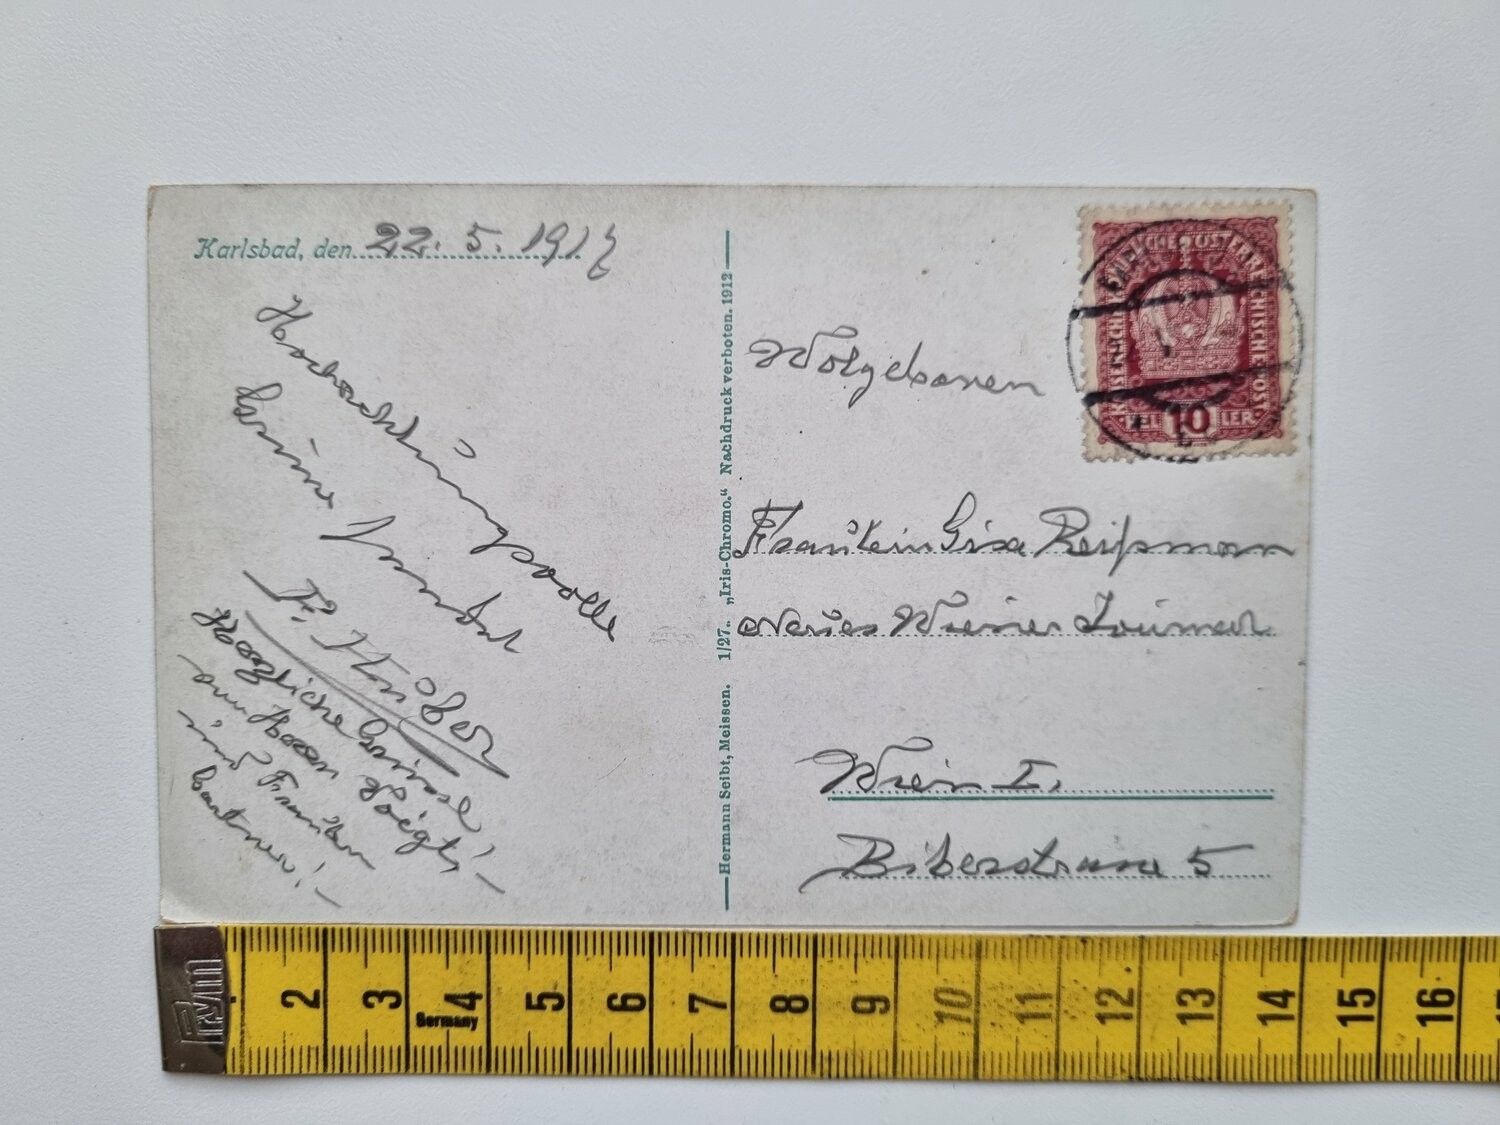 Karlsbad, den 22. 5. 191
Hochachtungsvolle
Grüsse
Herzliche Grüsse
Herrn
und Fräulein
Hermann Seibt, Meissen. 1/27. „Iris-Chromo.“ Nachdruck verboten. 1912
KAISERLICHE KÖNIGLICHE ÖSTERREICHISCHE POST
HELLER
10
Wolgeboren
Fräulein Gisa Reissmann
Neues Wiener Journal
Wien I.
Biberstrasse 5
Prym
2 3 4 5 6 7 8 9 10 11 12 13 14 15 16
Germany